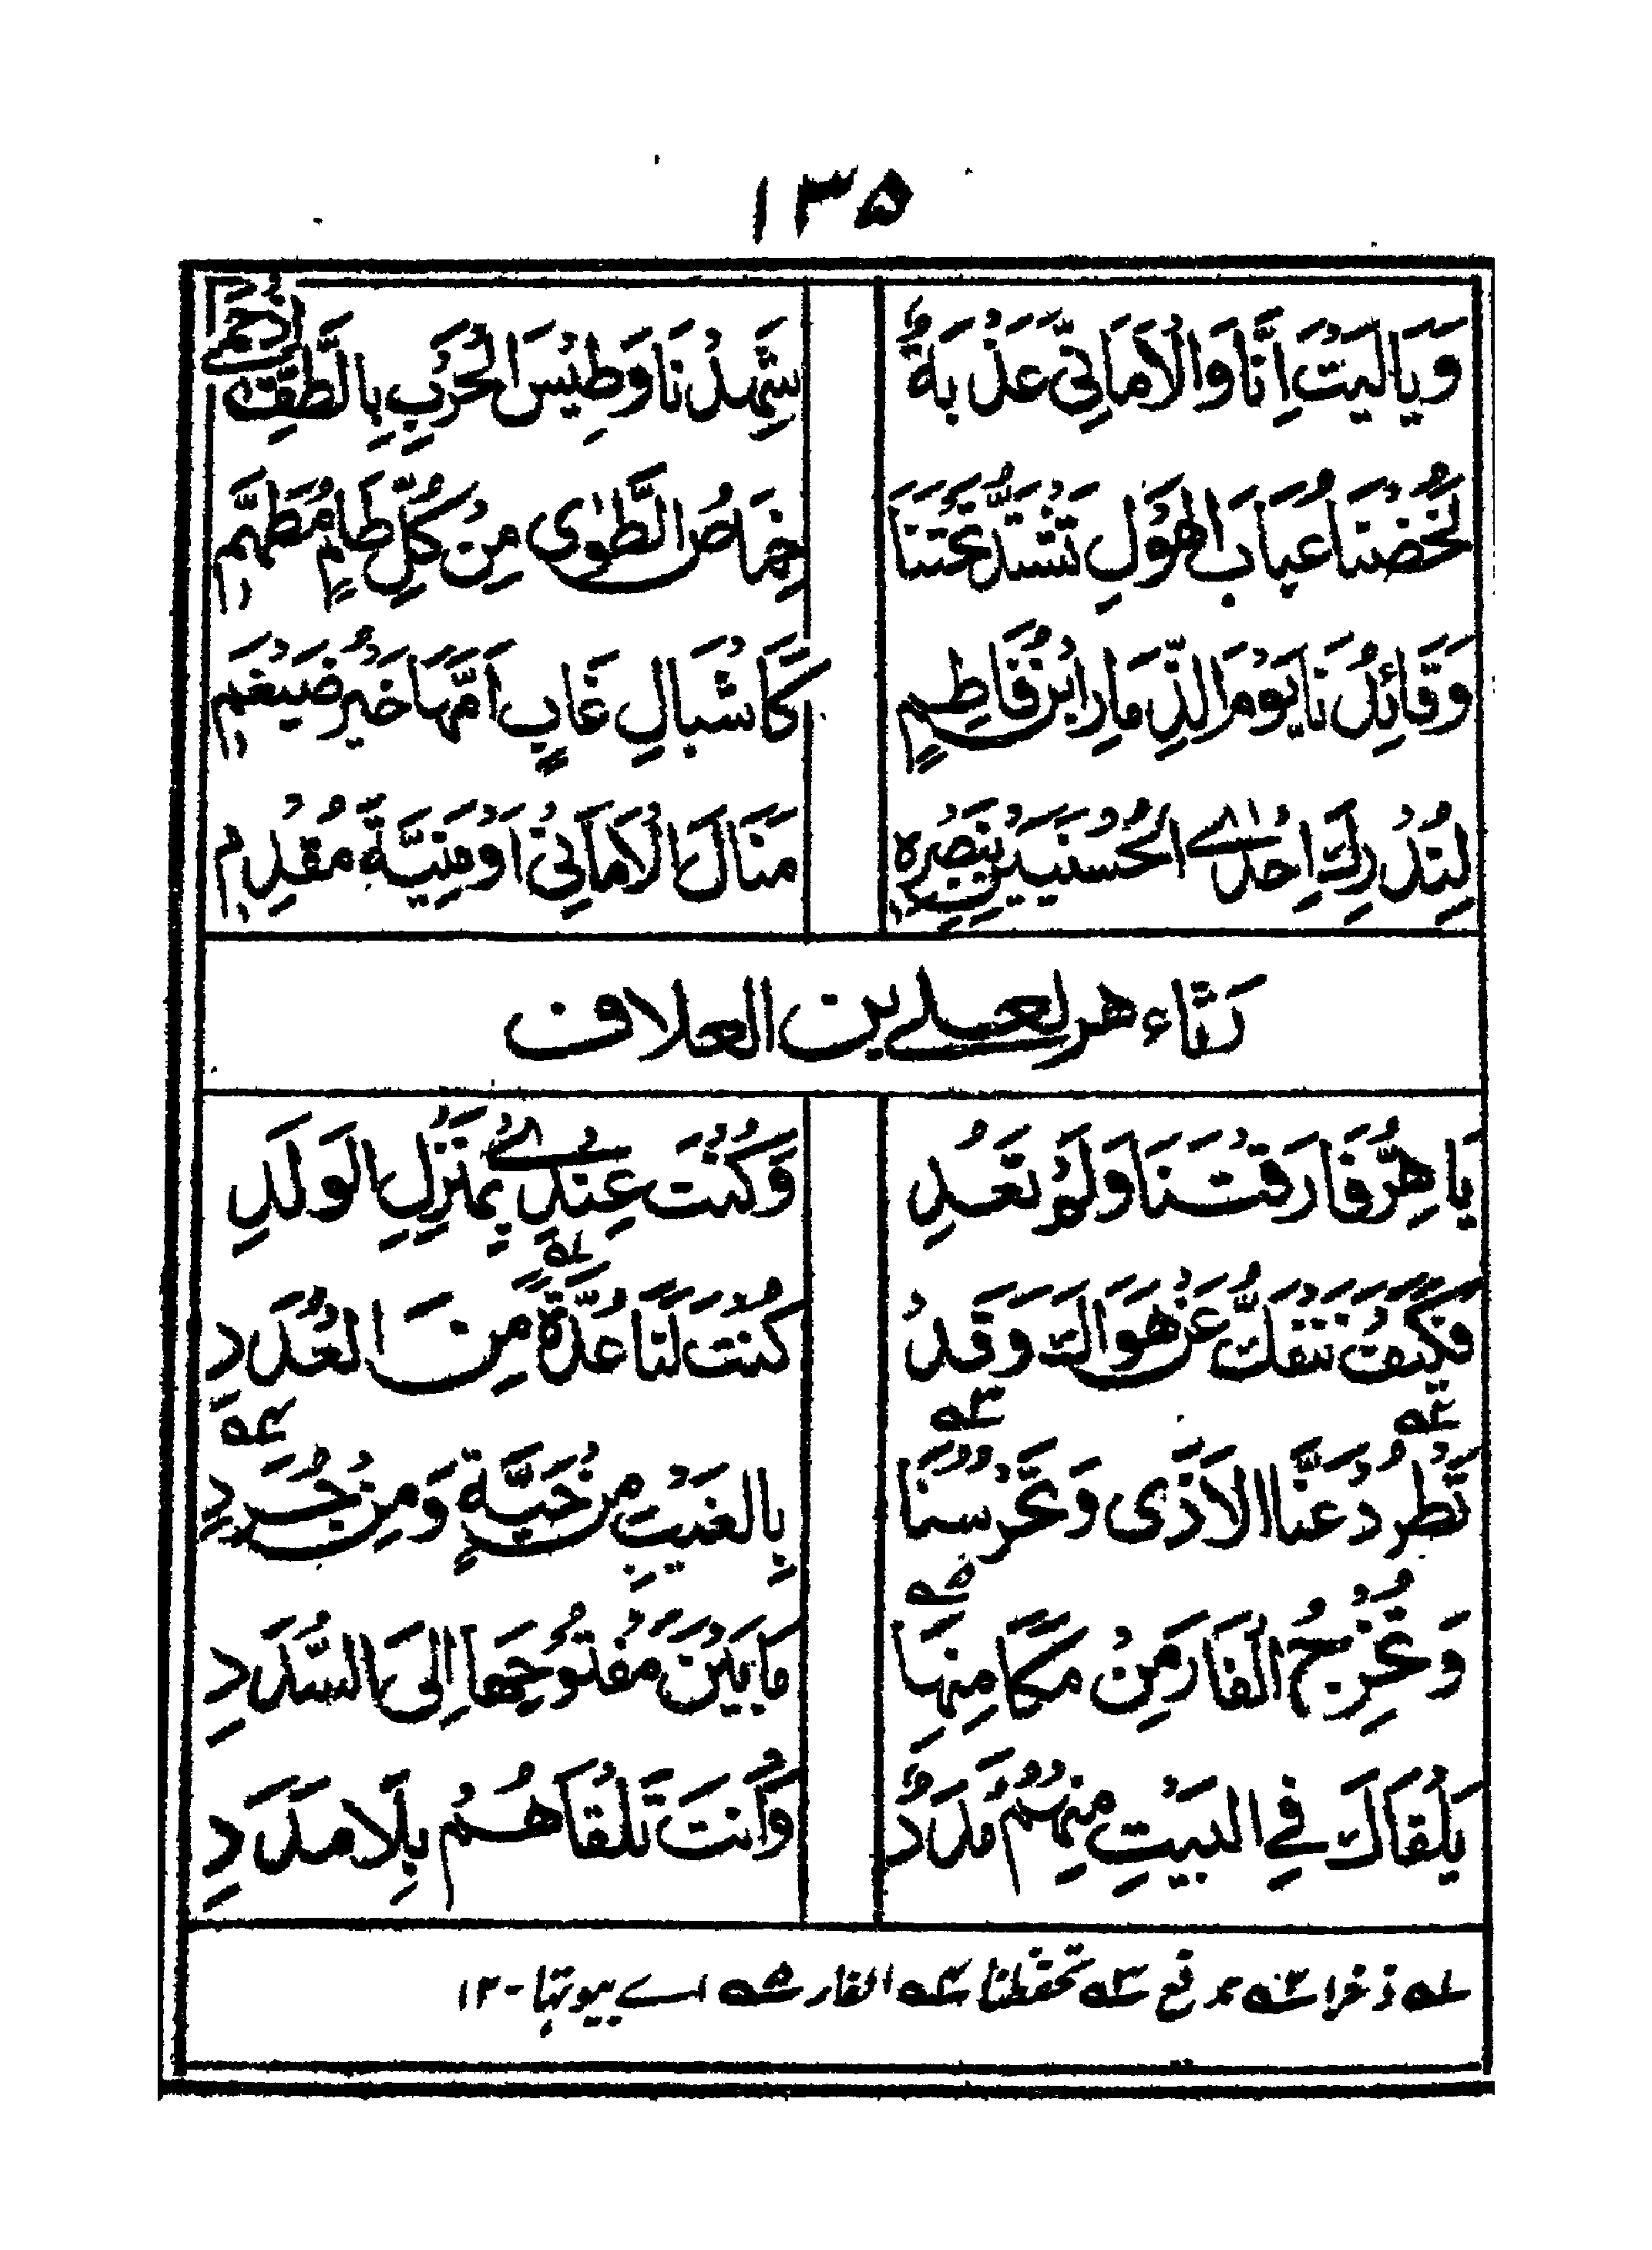 ۱۳۵
وَيَالَيْتَ اِنَّا وَالْاَمَانِيّ عَذْبَةٌ شَهِدْنَا وَطِيْسَ الْحَرْبِ بِالطَّفِّ اِذْ حُمِي
لَخُضْنَا عُبَابَ الْهَوْلِ تَشْتَدُّ تَحْتَنَا خِمَاصُ الطَّوٰى مِنْ كُلِّ طَامٍ مُطَهَّمِ
وَقَائِدُنَا يَوْمَ الذِّمَارِ ابْنُ فَاطِمٍ كَاَشْبَالِ غَابٍ اَمَّهَا خَيْرُ ضَيْغَمِ
لِنُدْرِكَ اِحْدَى الْحُسْنَيَيْنِ بِنَصْرِهِ مَنَالَ الْاَمَانِيْ اَوْ مَنِيَّةَ مُقْدِمِ
رثاء هر لعلي بن العلاف
يَا هِرُّ فَارَقْتَنَا وَلَمْ تَعُدِ وَكُنْتَ عِنْدِيْ بِمَنْزِلِ الْوَلَدِ
فَكَيْفَ نَنْفَكُّ عَنْ هَوَاكَ وَقَدْ كُنْتَ لَنَا عُدَّةً ؎۱ مِنَ الْعُدَدِ
تَطْرُدُ ؎۲ عَنَّا الْاَذٰى وَتَحْرُسُنَا ؎۳ بِالْغَيْبِ مِنْ حَيَّةٍ وَمِنْ جُرَدِ ؎۴
وَتُخْرِجُ الْفَارَ مِنْ مَكَامِنِهَا ؎۵ مَا بَيْنَ مَفْتُوْحِهَا اِلَى السُّدَدِ
يَلْقَاكَ فِي الْبَيْتِ مِنْهُمْ مَدَدٌ وَاَنْتَ تَلْقَاهُمْ بِلَا مَدَدِ
؎۱ ذخرا ؎۲ تدفع ؎۳ تحفظنا ؎۴ الفار ؎۵ اے بيوتها - ۱۲